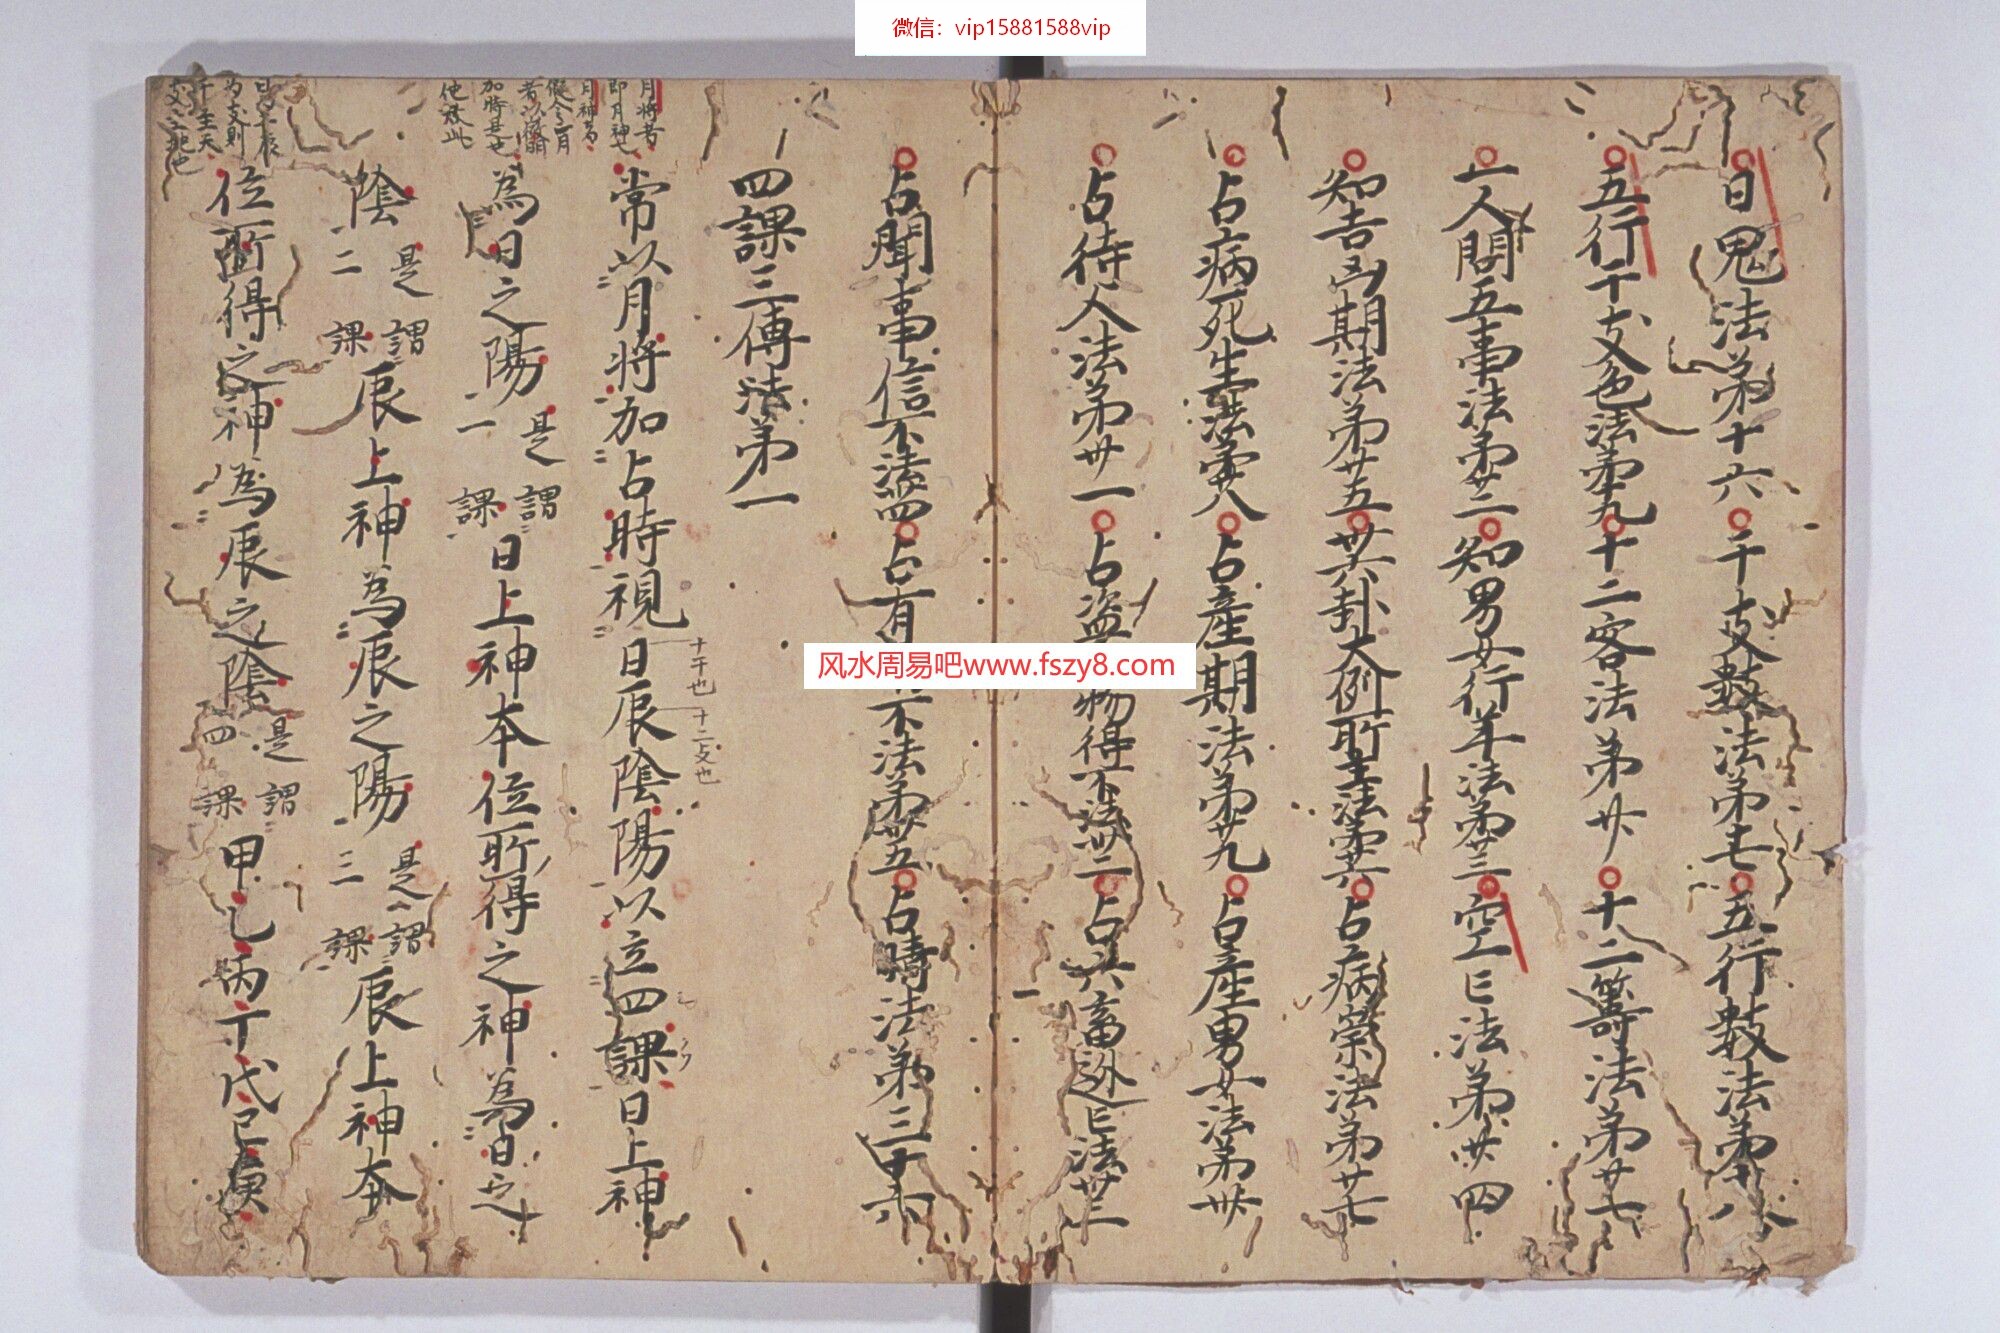 微信：vip15881588vip
日鬼法第十六 干支數法第十七 五行數法第十八
五行干支色法第十九 十二客法第廿 十二籌法第廿一
一人問五事法第廿二 知男女行年法第廿三 空亡法第廿四
知吉凶期法第廿五 卅六卦大例所主法第廿六 占病祟法第廿七
占病死生法第廿八 占產期法第廿九 占產男女法第卅
占待人法第卅一 占盜 物得不法卅二 占六畜逃亡法卅三
占聞事信不法卅四 占有 不法第卅五 占晴法第三十六
四課三傳法第一
月將者
即月神也
常以月將加占時視日辰陰陽以立四課日上神
十干也 十二支也
為日之陽 是謂一課 日上神本位所得之神為日之
陰 是謂二課 辰上神為辰之陽 是謂三課 辰上神本
位所得之神為辰之陰 是謂四課 甲乙丙丁戊己庚
风水周易吧www.fszy8.com